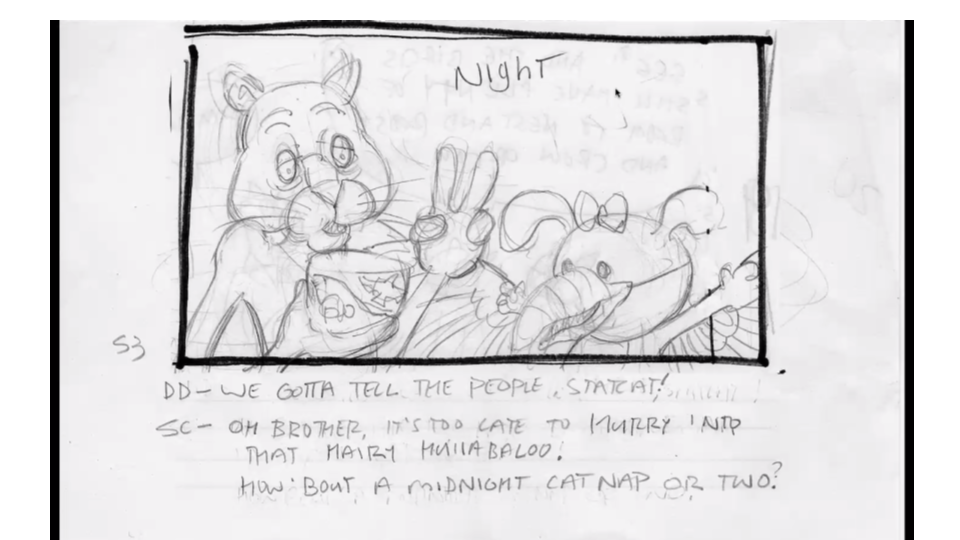 Night
53
DD - WE GOTTA TELL THE PEOPLE, STATCAT!
SC - OH BROTHER, IT'S TOO LATE TO HURRY INTO
THAT HAIRY HULLABALOO!
HOW 'BOUT A MIDNIGHT CATNAP OR TWO?